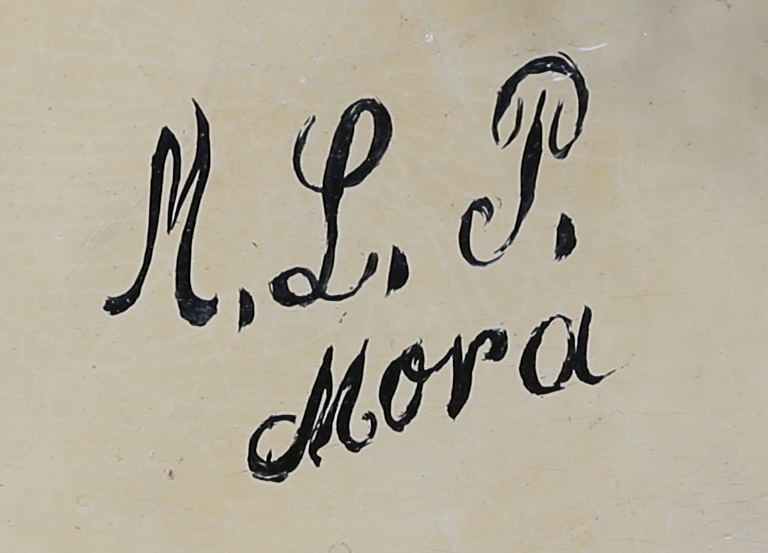 M. L. P.
Mora